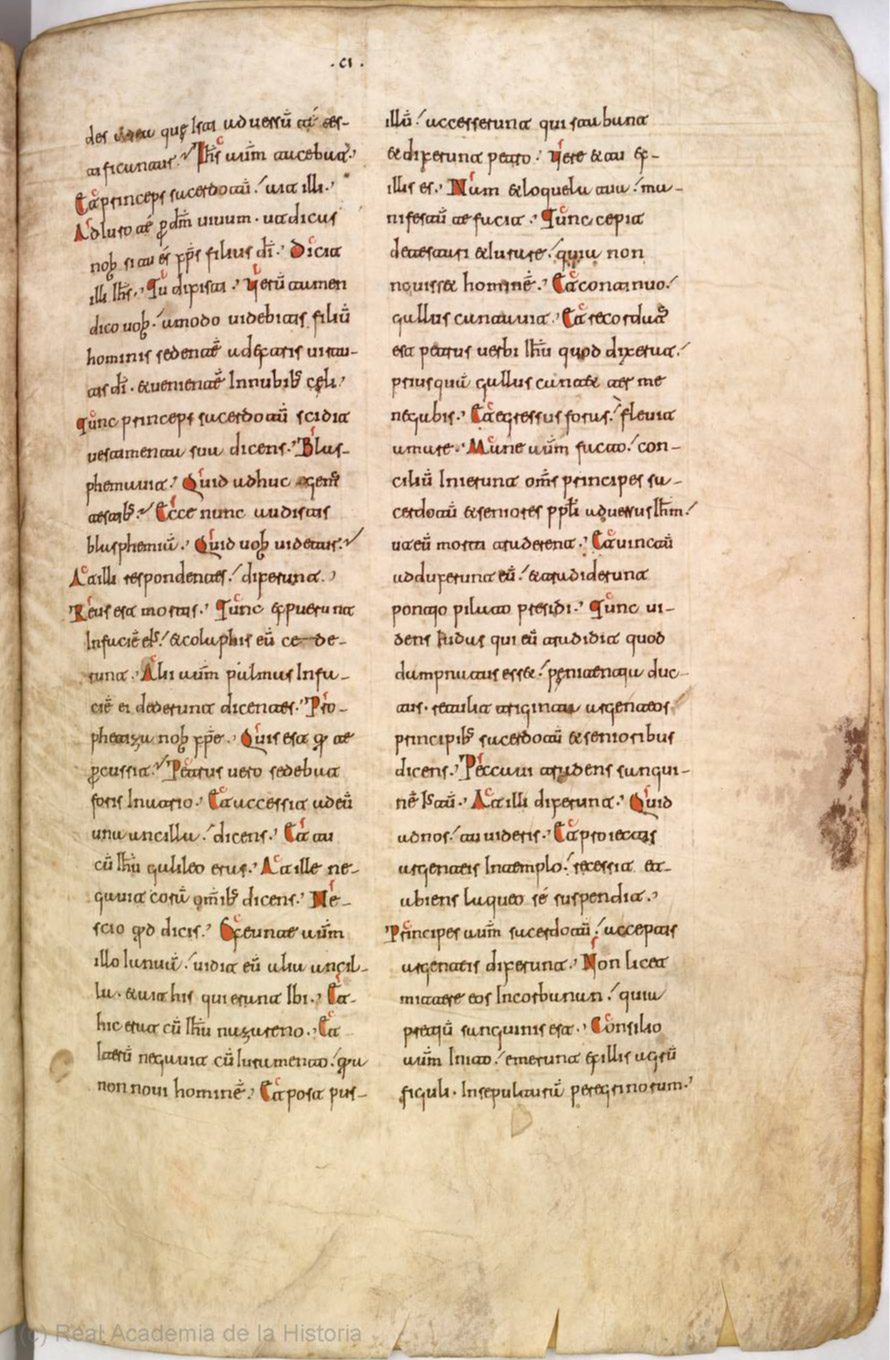 .ci.
des que Isti aduersū tē tes-
tificantur. Ihs aūm tacebat.
Et princeps sacerdotū. ait illi.
Adiuro te p̄ dm̄ uiuum. ut dicas
nob si tu es xp̄s filius dī. Dicit
illi Ihs. Tu dixisti. Uerū tamen
dico uob. amodo uidebitis filiū
hominis sedentē adextris uirtu-
tis dī. & uenientē Innubib cęli.
Tunc princeps sacerdotū scidit
uestimenta sua dicens. Blas-
phemauit. Quid adhuc egem̄
testib. Ecce nunc audistis
blasphemiā. Quid uob uidetur.
At illi respondentes. dixerunt.
Reus est mortis. Tunc expuerunt
Infaciē eĪ. & colaphis eū ce de-
runt. Alii aūm palmas Infa-
ciē ei dederunt dicentes. Pro-
phetiza nob xp̄e. Quis est q te
p̄cussit. Petrus uero sedebat
foris Inatrio. Et accessit adeū
una ancilla. dicens. Et tu
cū Ihū galileo eras. At ille ne-
gauit corā om̄ib dicens. Ne-
scio qd dicis. Exeunte aūm
illo Ianuā. uidit eū alia ancil-
la. & ait his qui erant Ibi. Et
hic erat cū Ihū nazareno. Et
Iterū negauit cū Iuramento. qa
non noui hominē. Et post pus-
illū. accesserunt qui stabant
& dixerunt petro. Uere & tu ex-
illis es. Nam & loquela tua. ma-
nifestū te facit. Tunc cepit
detestari & Iurare. quia non
nouisset hominē. Et continuo.
gallus cantauit. Et recordat
est petrus uerbi Ihū quod dixerat.
priusquā gallus cantet ter me
negabis. Et egressus foras. fleuit
amare. Mane aūm facto. con-
ciliū Inierunt om̄s principes sa-
cerdotū & seniores ppli aduersus Ihm.
ut eū morti traderent. Et uinctū
adduxerunt eū. & tradiderunt
pontio pilato presidi. Tunc ui-
dens Iudas qui eū tradidit quod
dampnatus esset. penitentia duc-
tus. retulit triginta argenteos
principib sacerdotū & senioribus
dicens. Peccaui tradens sangui-
nē Istū. At illi dixerunt. Quid
adnos. tu uideris. Et proiectis
argenteis Intemplo. recessit. et
abiens laqueo sé suspendit.
Principes aūm sacerdotū. acceptis
argenteis dixerunt. Non licet
mittere eos Incorbanan. quia
pretiū sanguinis est. Consilio
aūm Inito. emerunt exillis agrū
figuli. Insepulturā peregrinorum.
(c) Real Academia de la Historia